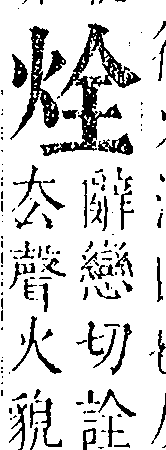 烇
辭戀切詮
厺聲火貌